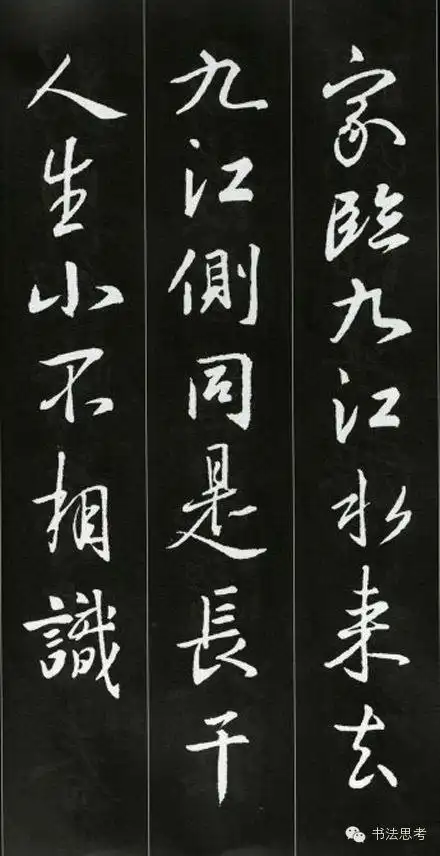 家臨九江水来去
九江側同是長干
人生小不相識
书法思考